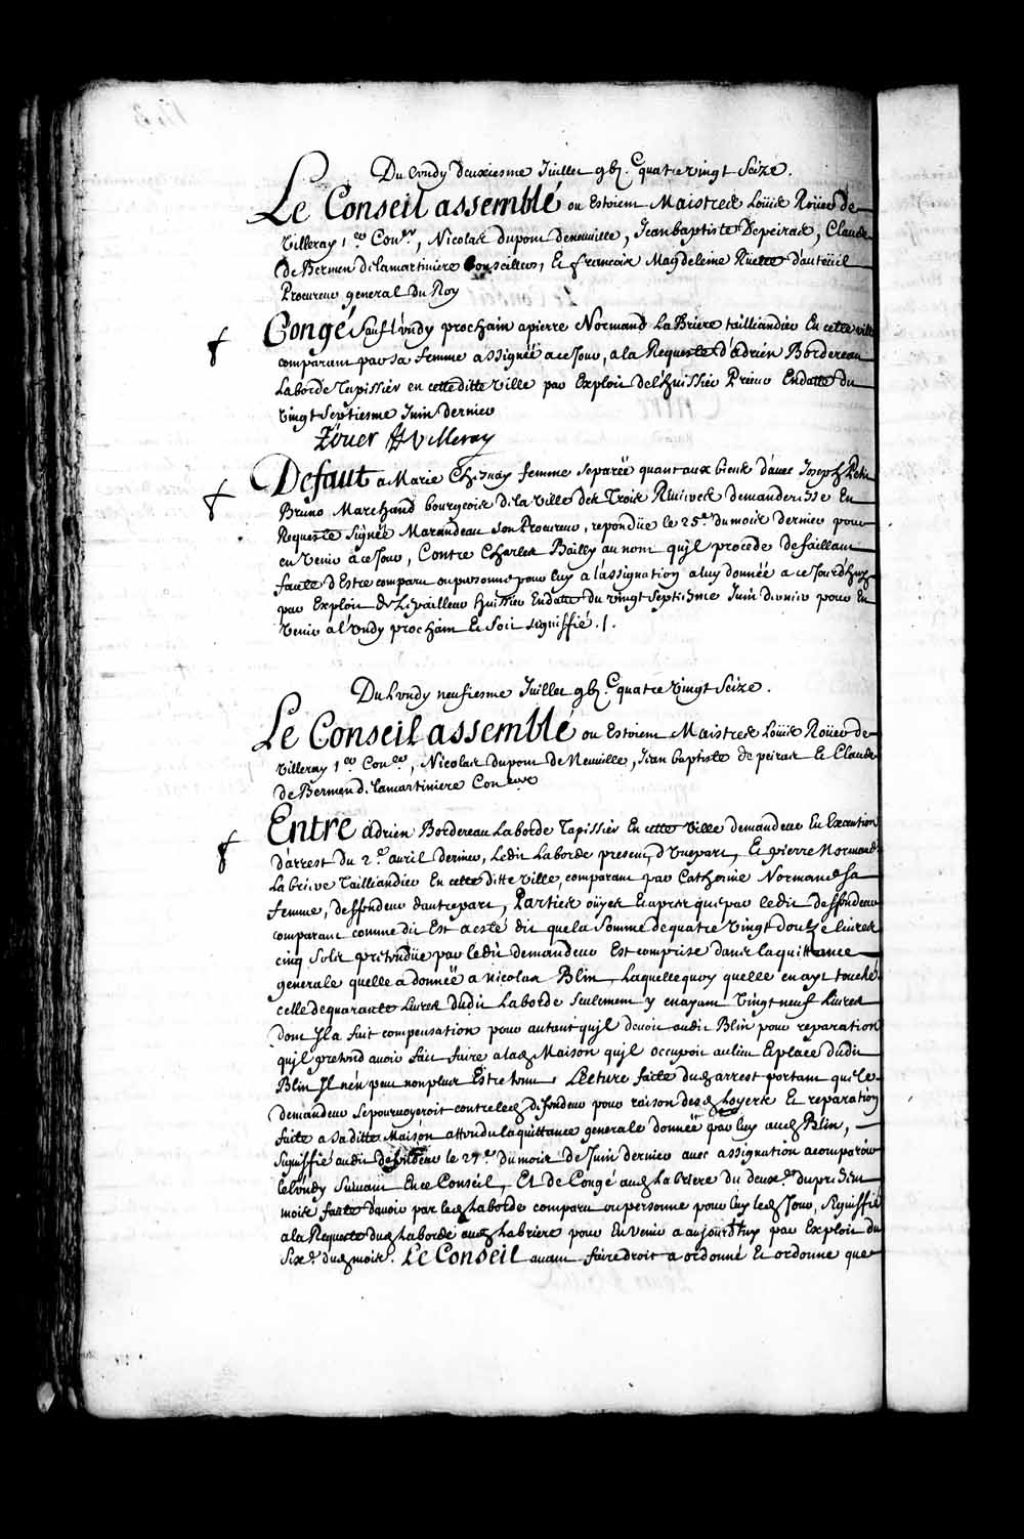 Du Lundy deuxiesme Juillet gbj.C quatre vingt Seize.
Le Conseil assemblé ou Estoient Maistres Loüis Roüer de
Villeray 1er Coner, Nicolas dupont deneuville, Jean baptiste Depeiras, Claude
de Bermen de lamartiniere Conseillers, Et francois Magdeleine Ruette d'auteüil
Procureur general du Roy
Congé Sauf Lundy prochain a pierre Normand La Briere tailliandier En cette ville
comparant par sa femme assignéë a ce Jour, a la Requeste d'adrien Bordereau
Laborde Tapissier en cette ditte Ville par Exploit de l'huissier Prieur En datte du
vingt Septiesme Juin dernier
Roüer de Villeray
Defaut a Marie Chesnay femme Separéë quant aux biens d'avec Joseph Petit
Bruno Marchand bourgeois de la Ville des Trois Rivieres demanderesse En
Requeste Signéë Marandeau son Procureur, repondüe le 25e du mois dernier pour
en Venir a ce Jour, Contre Charles Bailly au nom qu'jl procede defaillant
faute d'Estre comparu ou personne pour luy a l'assignation a luy donnéé a ce Jourd'huy
par Exploit de Lepailleur huissier En datte du vingt Septiesme Juin dernier pour En
Venir a Lundy prochain Et Soit signiffié ./.
Du Lundy neufiesme Juillet gbj.C quatre vingt Seize.
Le Conseil assemblé ou Estoient Maistres Loüis Roüer de
Villeray 1er Coner, Nicolas dupont de Neuville, Jean baptiste de peiras Et Claude
de Bermen de lamartiniere Coners
Entre adrien Bordereau Laborde Tapissier En cette Ville demandeur En Execution
d'arrest du 2e. avril dernier, Ledit Laborde present d'Vne part, Et pierre Normand
La briere Tailliandier En cette ditte ville, comparant par Catherine Normand sa
femme, deffendeur d'autre part, Parties oüyes Et apres que par ledit deffendeur
comparant comme dit Est a esté dit que la Somme de quatre vingt douze livres
cinq Sols pretendüe par ledit demandeur Est comprise dans la quittance
generale quelle a donnéë a nicolas Blin, Laquelle quoy quelle en ayt touché
celle de quarante Livres dudit Laborde Seulement y en ayant vingt neuf Livres
dont Jl a fait compensation pour autant qu'jl devoit audit Blin pour reparation
qu'jl pretend avoir fait faire a lad. Maison qu'jl occupoit au lieu Et place dudit
Blin Jl n'en peut non plus Estre tenu, Lecture faite dud. arrest portant que le
demandeur Se pourvoyeroit contre led. defendeur pour raison desd. Loyers Et reparation
faite a Sa ditte Maison attendu la quittance generale donnéë par luy aud. Blin,
Signiffié audit defendeur le 27e du mois de Juin dernier avec assignation a comparoir
le Lundy Suivant En ce Conseil, Et de Congé aud. La briere du deuxe. du present
mois faute d'avoir par led. Laborde comparu ou personne pour luy led. Jour, Signiffié
a la Requeste dud. Laborde aud. Labriere pour En Venir a aujourd'huy par Exploit du
Sixe. dud. mois. Le Conseil avant faire droit a ordonné Et ordonne que